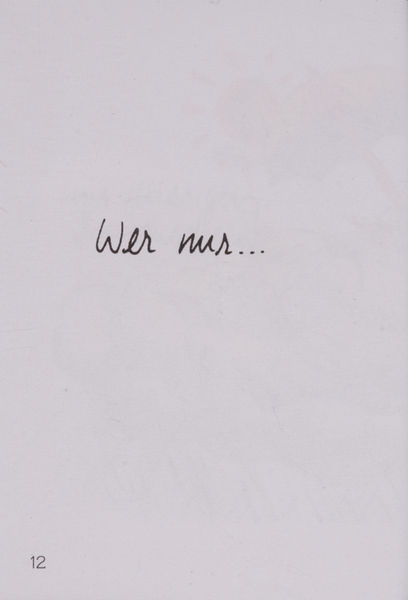 Wer nur...
12